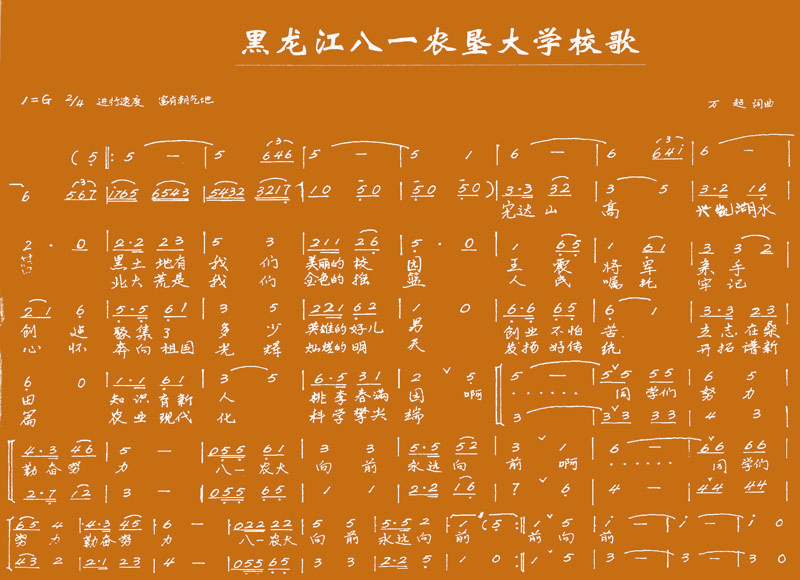 黑龙江八一农垦大学校歌
1=G 2/4 进行速度 富有朝气地
万超 词曲
(5 ‖: 5 — | 5 646 | 5 — | 5 1 | 6 — | 6 641 | 6 —
6 567 | 1765 6543 | 5432 3217 | 10 50 | 50 50 ) | 3·3 32 | 3 5 | 3·2 16
完达山 高 兴凯湖水
2·0 | 2·2 23 | 5 3 | 211 26 | 5·0 | 1 65 | 1 61 | 3 32
黑土地有 我们 美丽的校 园 王震 将军 亲手
北大荒是 我们 金色的摇 篮 人民 嘱托 牢记
21 6 | 5·5 61 | 3 5 | 221 62 | 1 0 | 6·6 65 | 6 1 | 3·3 23
创造 聚集了 多少 英雄的好儿 男 创业不怕 苦 立志在桑
心怀 奔向祖国 光辉 灿烂的明 天 发扬好传 统 开拓谱新
6 0 | 1·1 61 | 3 5 | 6·5 31 | 2 5 | 5 — | 55 55 | 6 5
田 知识育新 人 桃李春满 园 啊 同学们 努力
篇 农业现代 化 科学攀尖 端
3 — | 33 33 | 4 3
4·3 46 | 5 — | 055 61 | 3 3 | 5·5 52 | 3 1 | 6 — | 66 66
勤奋努 力 八一农大 向前 永远向 前 啊 同学们
2·7 12 | 3 — | 055 65 | 1 1 | 2·2 16 | 7 6 | 4 — | 44 44
65 4 | 43 45 | 6 — | 022 22 | 5 5 | 5·5 2 | 1 (5 :‖ 1 5 | 1 — | 1 — | 1 1 0
努力 勤奋努 力 八一农大 向前 永远向 前 前 向 前
43 2 | 21 23 | 4 — | 055 65 | 3 3 | 2·2 5 | 1 0 :‖ 1 5 | 3 — | 3 — | 3 3 0